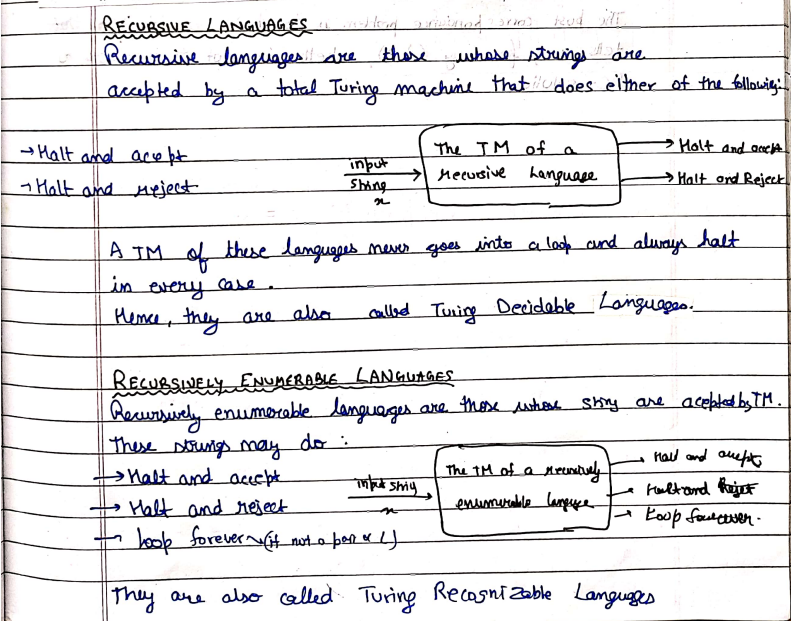 RECURSIVE LANGUAGES
Recursive languages are those whose strings are
accepted by a total Turing machine that does either of the following:
→Halt and accept
→Halt and reject
input
string
x
The TM of a
recursive Language
→ Halt and accept
→ Halt and Reject
A TM of these languages never goes into a loop and always halt
in every case.
Hence, they are also called Turing Decidable Languages.
RECURSIVELY ENUMERABLE LANGUAGES
Recursively enumerable languages are those whose string are accepted by TM.
These strings may do :
→ Halt and accept
→ Halt and reject
→ loop forever (if not a part of L)
input string
x
The TM of a recursively
enumerable language
→ Halt and accept
→ Halt and Reject
→ Loop forever.
They are also called Turing Recognizable Languages